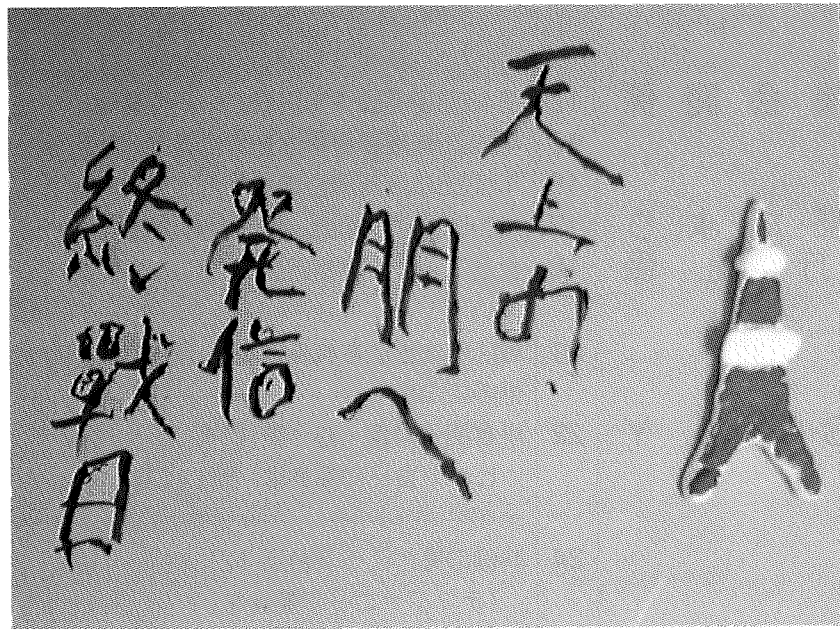 天上の
朋へ
発信
終戰日